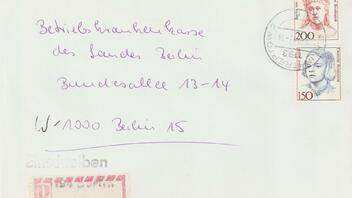 Betriebskrankenkasse
des Landes Berlin
Bundesallee 13-14
W-1000 Berlin 15
Einschreiben
200
150